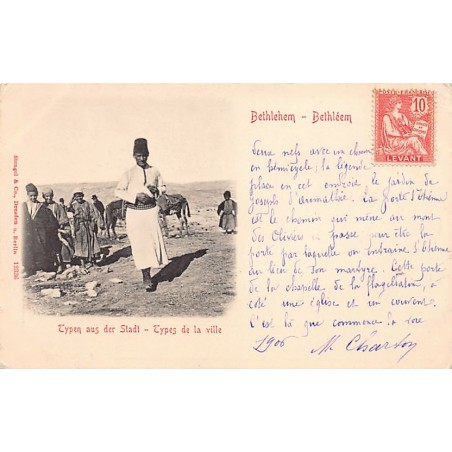 Bethlehem - Bethléem
10
LEVANT
Stengel & Co., Dresden u. Berlin 12236
avec un
en hémicycle; la légende
place en cet endroit le jardin de
Joseph d'Arimathie. La porte St Etienne
est le chemin qui mène au mont
des Oliviers a passe pour être la
porte par laquelle on entraîna St Etienne
au lieu de son martyre. Cette porte
de la chapelle de la flagellation, à
côté une église et un couvent.
C'est là que commence la voie
1906 M Chardon
Typen aus der Stadt - Types de la ville